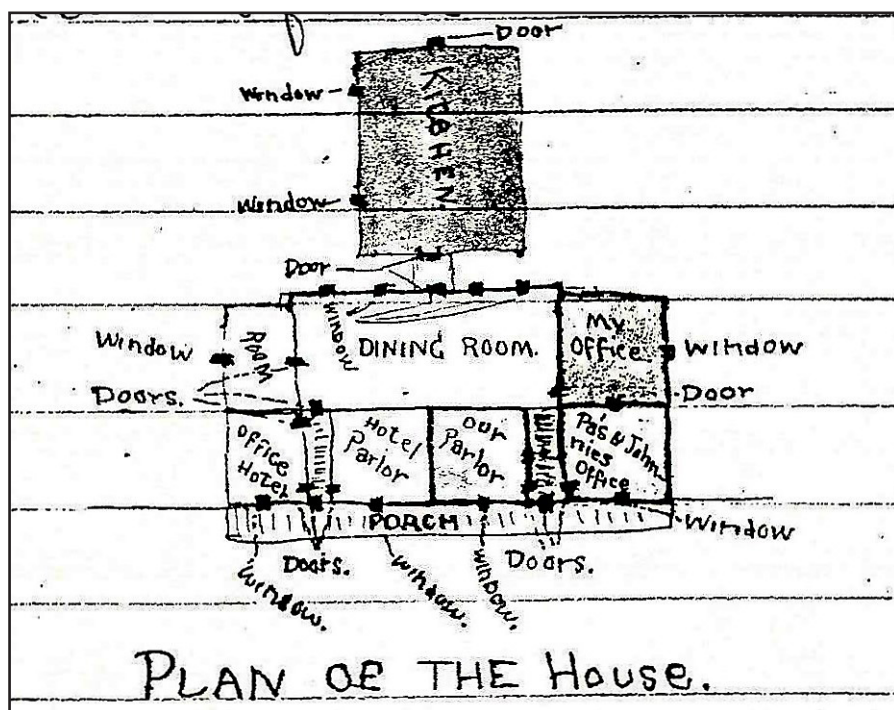 Door
KITCHEN
Window
Window
Door
WINDOW
ROOM
DINING ROOM.
My
Office
Window
Window
Doors.
Door
Office
Hotel
Hotel
Parlor
Our
Parlor
Pa's & John
nies
Office
PORCH
Window
Doors.
Doors.
Window.
Window.
Window.
PLAN OF THE House.